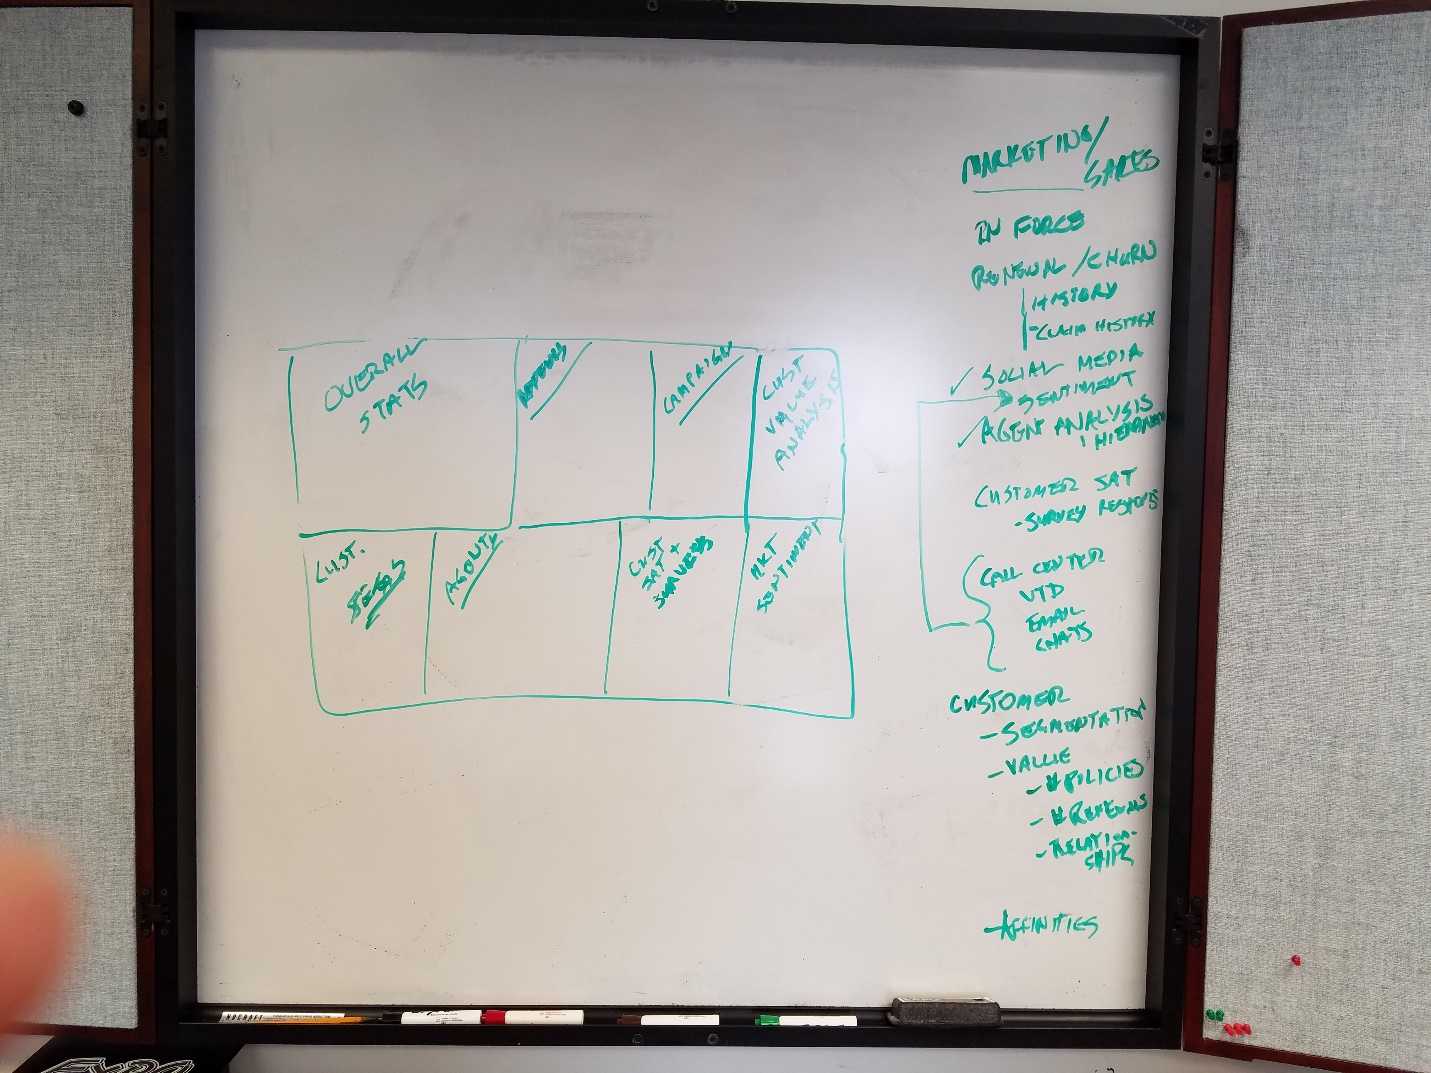 OVERALL
STATS
CAMPAIGN
CUST
VALUE
ANALYSIS
CUST.
SEGS
AGENTS
CUST
SAT +
SURVEYS
MKT
SENTIMENT
MARKETING/
SALES
IN FORCE
RENEWAL / CHURN
HISTORY
- CLAIM HISTORY
✓ SOCIAL MEDIA
SENTIMENT
✓ AGENT ANALYSIS
CUSTOMER SAT
- SURVEY
CALL CENTER
VTD
EMAIL
CHATS
CUSTOMER
- SEGMENTATION
- VALUE
- # POLICIES
- # RENEWALS
- RELATION-
SHIPS
- AFFINITIES
EXPO